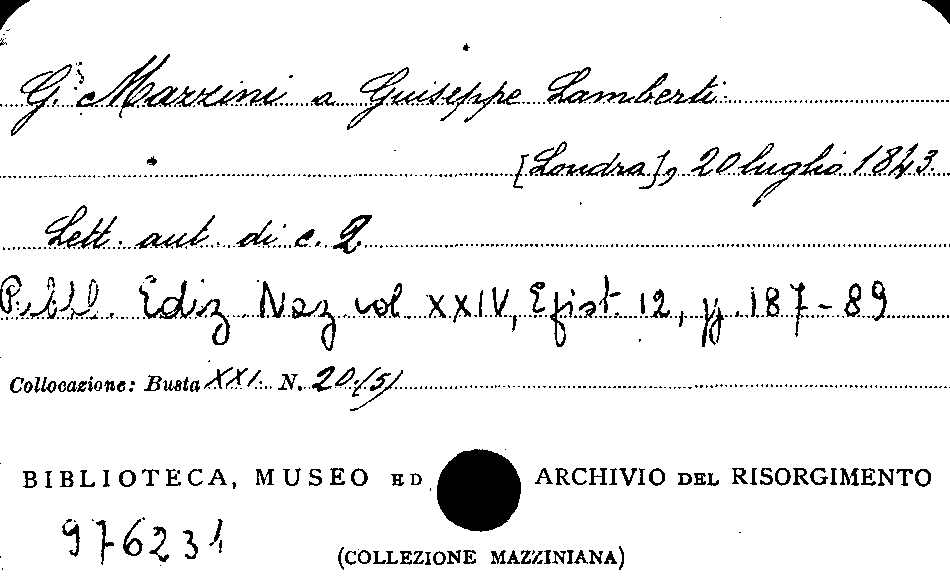 G. Mazzini a Giuseppe Lamberti
[Londra], 20 luglio 1843.
Lett. aut. di c. 2
Pubbl. Ediz Naz vol XXIV, Epist. 12, pp. 187-89
Collocazione: Busta XXI. N. 20.(5)
BIBLIOTECA, MUSEO ED ARCHIVIO DEL RISORGIMENTO
976231
(COLLEZIONE MAZZINIANA)